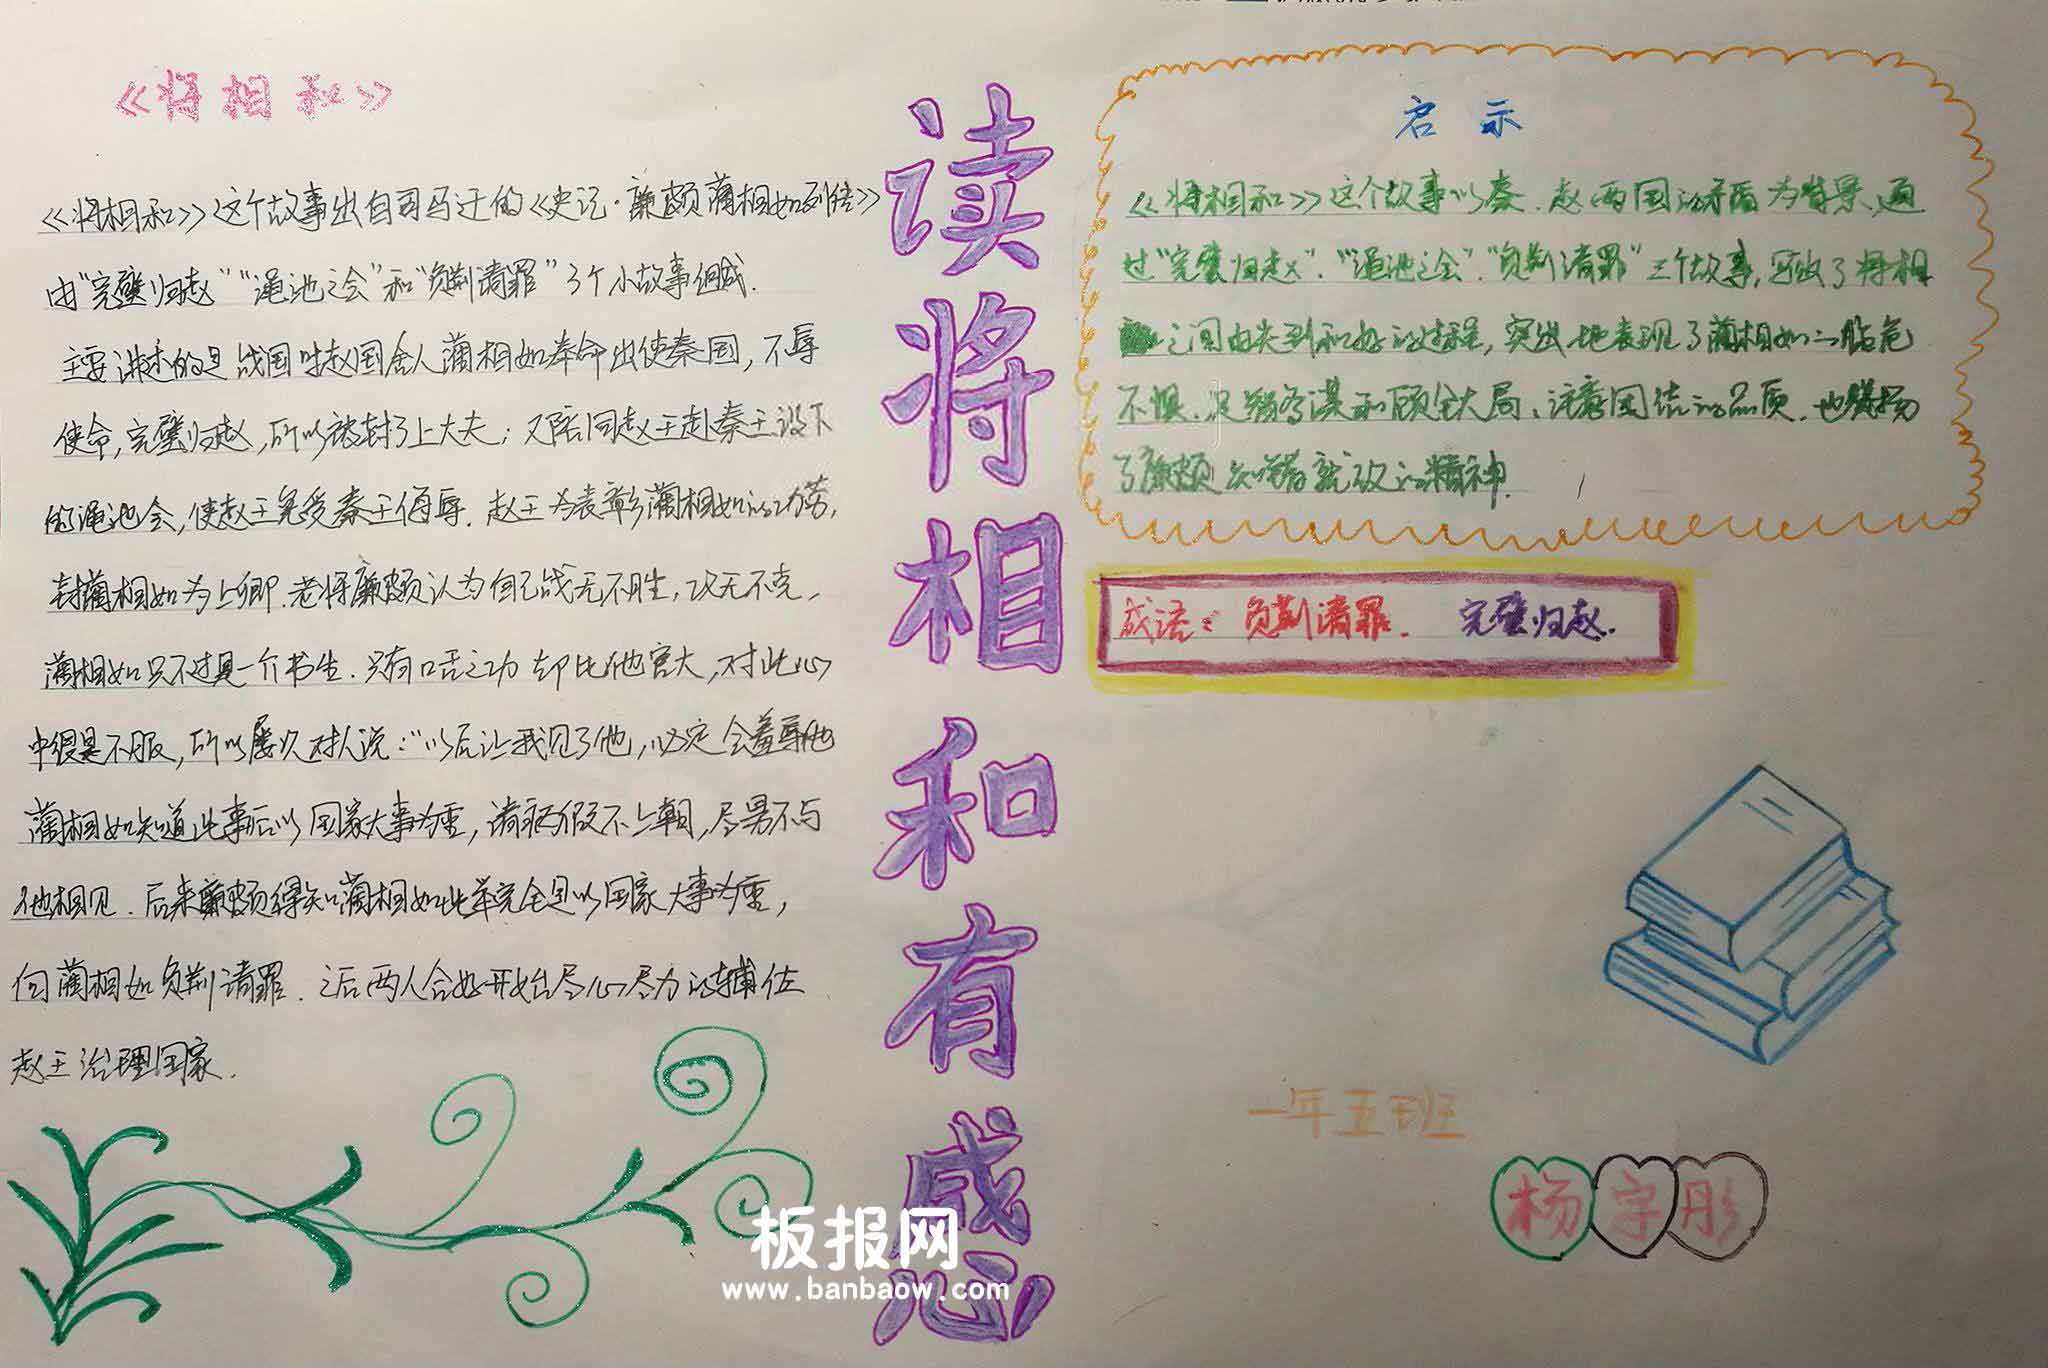 《将相和》
《将相和》这个故事出自司马迁的《史记·廉颇蔺相如列传》
由“完璧归赵”“渑池之会”和“负荆请罪”3个小故事组成.
主要讲述的是战国时赵国舍人蔺相如奉命出使秦国,不辱
使命,完璧归赵,所以被封了上大夫;又陪同赵王赴秦王设下
的渑池会,使赵王免受秦王侮辱.赵王为表彰蔺相如的功劳,
封蔺相如为上卿.老将廉颇认为自己战无不胜,攻无不克,
蔺相如只不过是一介书生.只有口舌之功却比他官大,对此心
中很是不服,所以屡次对人说:“以后让我见了他,必定会羞辱他
蔺相如知道此事后以国家大事为重,请病假不上朝,尽男不与
他相见.后来廉颇得知蔺相如此举完全是以国家大事为重,
向蔺相如负荆请罪.之后两人合好开始尽心尽力的辅佐
赵王治理国家.
读将相和有感
启示
《将相和》这个故事以秦.赵两国的矛盾为背景,通
过“完璧归赵”.“渑池之会”.“负荆请罪”三个故事,写出了将相
之间由关到和好的过程,突出地表现了蔺相如临危
不惧.足智多谋和顾全大局、注意团结的品质.也赞扬
了廉颇知错就改的精神.
成语:负荆请罪. 完璧归赵.
一年五班
杨字彤
板报网
www.banbaow.com